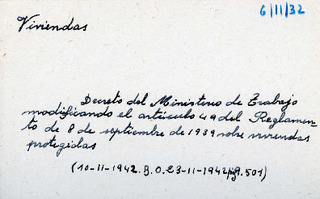 6/11/32
Viviendas
Decreto del Ministerio de Trabajo
modificando el artículo 49 del Reglamen-
to de 8 de septiembre de 1939 sobre viviendas
protegidas
(10-11-1942. B.O. 23-11-1942, pg. 501)